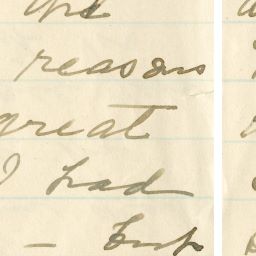 the
reasons
great
I had
–